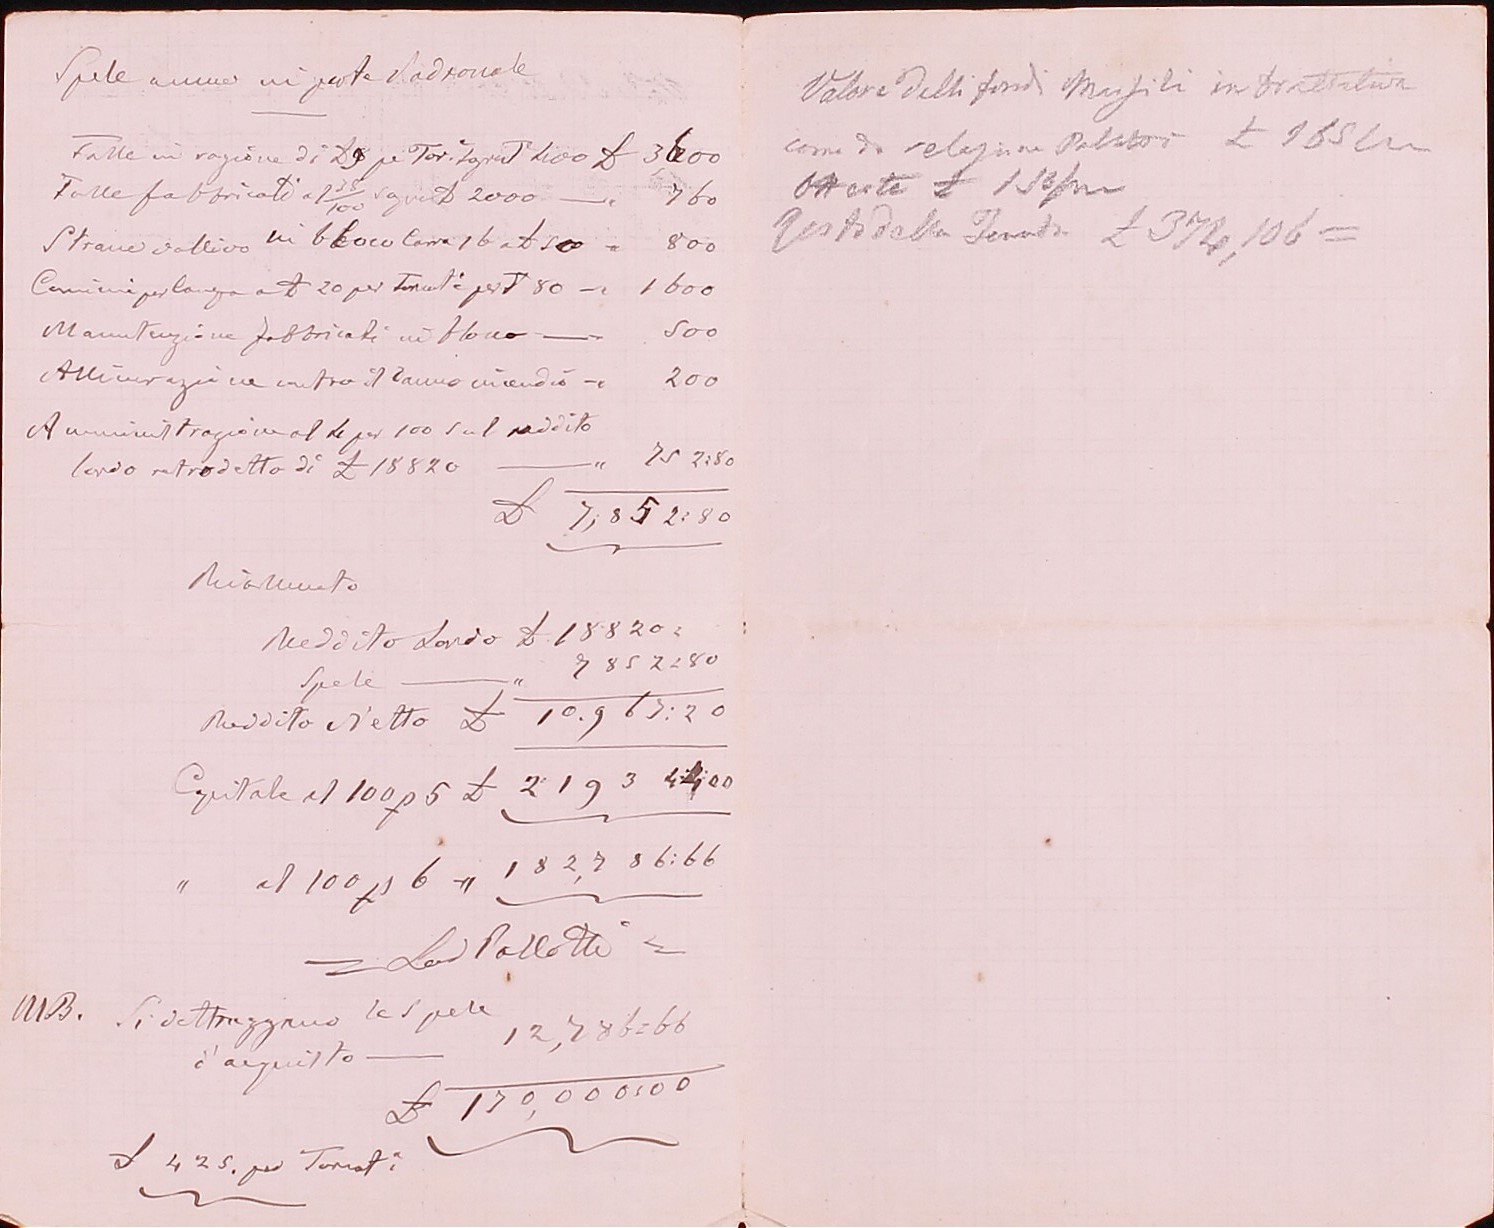 Spese annue in parte Padronale
Tasse in ragione di £ 9 per Tor.ª sopra T. 400 £ 3,600
Tasse fabbricati al 38/100 sopra £ 2000 — " 760
Strame vallivo in blocco Carra 16 a £ 50 = 800
Concimi per Canapa a £ 20 per Tornat.ª per T 80 — " 1600
Manutenzione fabbricati in blocco — " 500
Assicurazione contro il danno incendio — " 200
Amministrazione al 4 per 100 sul reddito
lordo retrodetto di £ 18820 — " 752:80
£ 7,852:80
Riassunto
Reddito Lordo £ 18820:
Spese — " 7852:80
Reddito Netto £ 10.967:20
Capitale al 100 p 5 £ 219344:00
" al 100 p 6 — " 182,786:66
= Lod Pallotti =
NB. Si dettraggano le Spese
d'acquisto — 12,786=66
£ 170,000:00
£ 425. per Tornat.ª
Valore delli fondi Marsili in trattativa
come da relazione Pallotti £ 165/m
Offerte £ 150/m
Resto della Tenuta £ 374,106 =